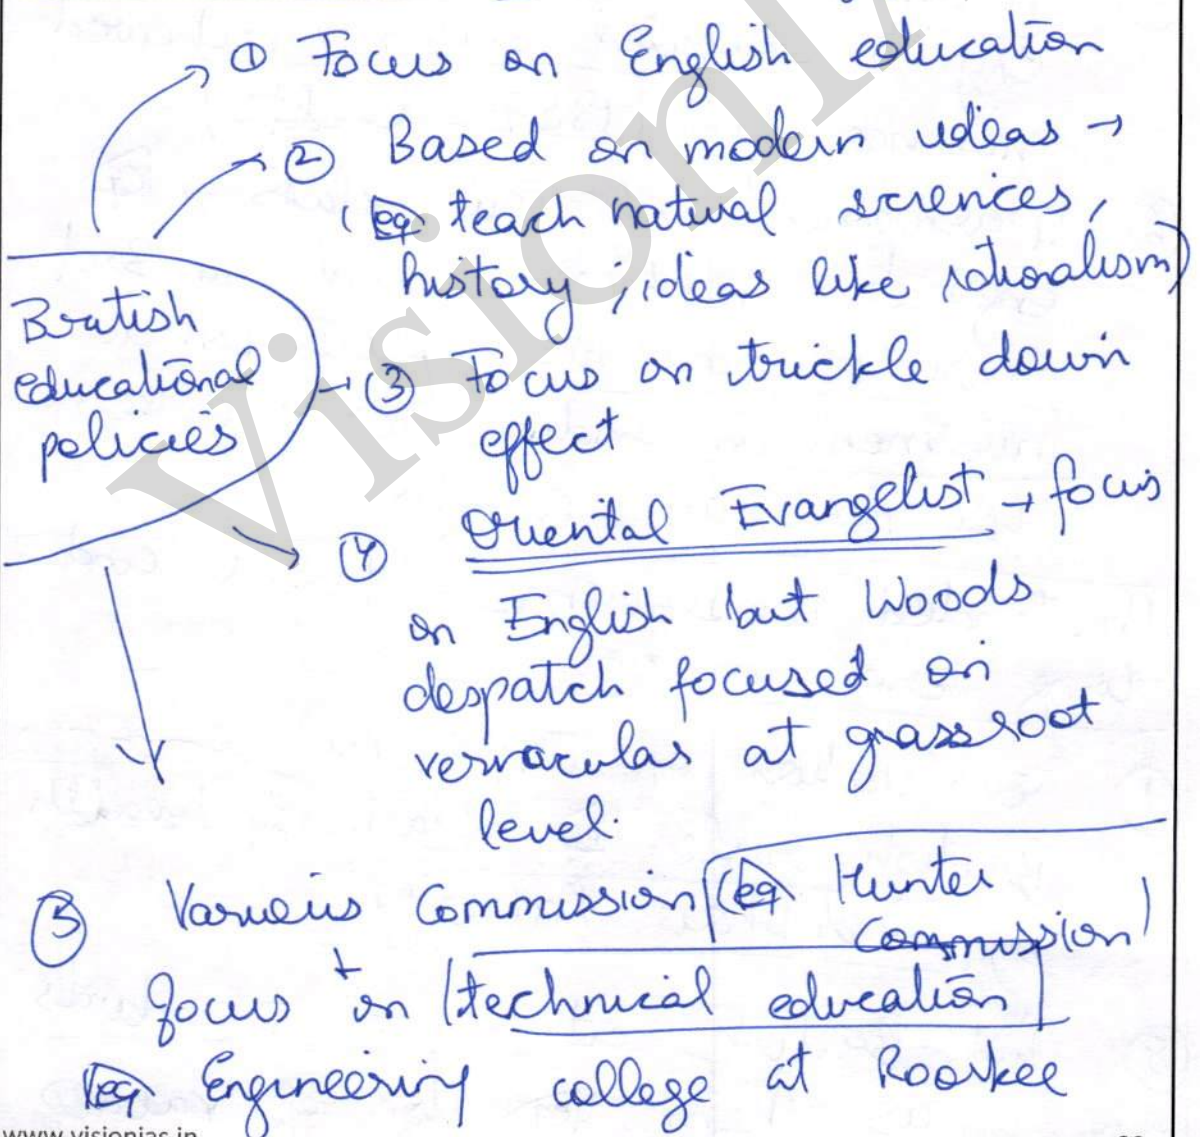 ① Focus on English education
② Based on modern ideas →
(eg teach natural sciences,
history ; ideas like rationalism)
British
educational
policies
→ ③ Focus on trickle down
effect
④ Oriental Evangelist → focus
on English but Woods
despatch focused on
vernacular at grassroot
level.
⑤ Various Commission (eg Hunter
Commission)
+
focus on technical education
eg Engineering college at Roorkee
www.visionias.in
Vision